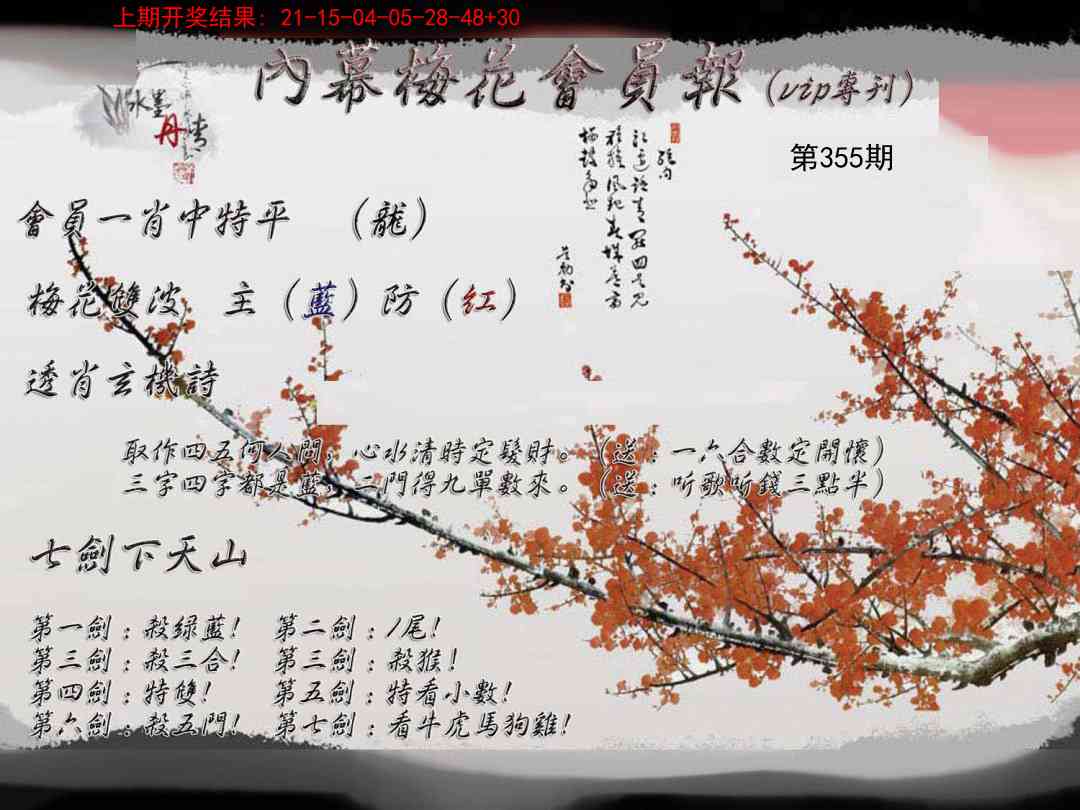 上期开奖结果: 21-15-04-05-28-48+30
內幕梅花會員報（vip專刊）
水墨丹青
第355期
會員一肖中特平 （龍）
梅花雙波 主（藍）防（紅）
透肖玄機詩
取作四五何人問，心水清時定髮財。（送：一六合數定開懷）
三字四字都是藍，二門得九單數來。（送：听歌听錢三點半）
七劍下天山
第一劍：殺绿藍! 第二劍：/尾!
第三劍：殺三合! 第三劍：殺猴!
第四劍：特雙! 第五劍：特看小數!
第六劍：殺五門! 第七劍：看牛虎馬狗雞!